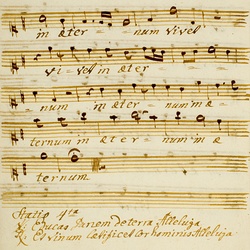 in æter num vivet
vivet in æter
num in æter num in æ
ternum in æter num in æ
ternum.
Statio 4ta
℣. Educas Panem de terra Alleluja
℟. Et vinum lætificet Cor hominis Alleluja.